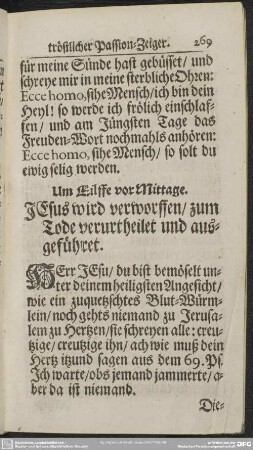 tröstlicher Passion-Zeiger. 269
für meine Sünde hast gebüsset/ und
schreye mir in meine sterbliche Ohren:
Ecce homo, sihe Mensch/ ich bin dein
Heyl! so werde ich frölich einschlaf-
fen/ und am Jüngsten Tage das
Freuden-Wort nochmahls anhören:
Ecce homo, sihe Mensch/ so solt du
ewig selig werden.
Um Eilffe vor Mittage.
JEsus wird verworffen/ zum
Tode verurtheilet und aus-
geführet.
HErr JEsu/ du bist bemöselt un-
ter deinem heiligsten Angesicht/
wie ein zuquetzschtes Blut-Würm-
lein/ noch gehts niemand zu Jerusa-
lem zu Hertzen/ sie schreyen alle: creu-
tzige/ creutzige ihn/ ach wie muß dein
Hertz itzund sagen aus dem 69. Ps.
Ich warte/ obs jemand jammerte/ a-
ber da ist niemand.
Die-